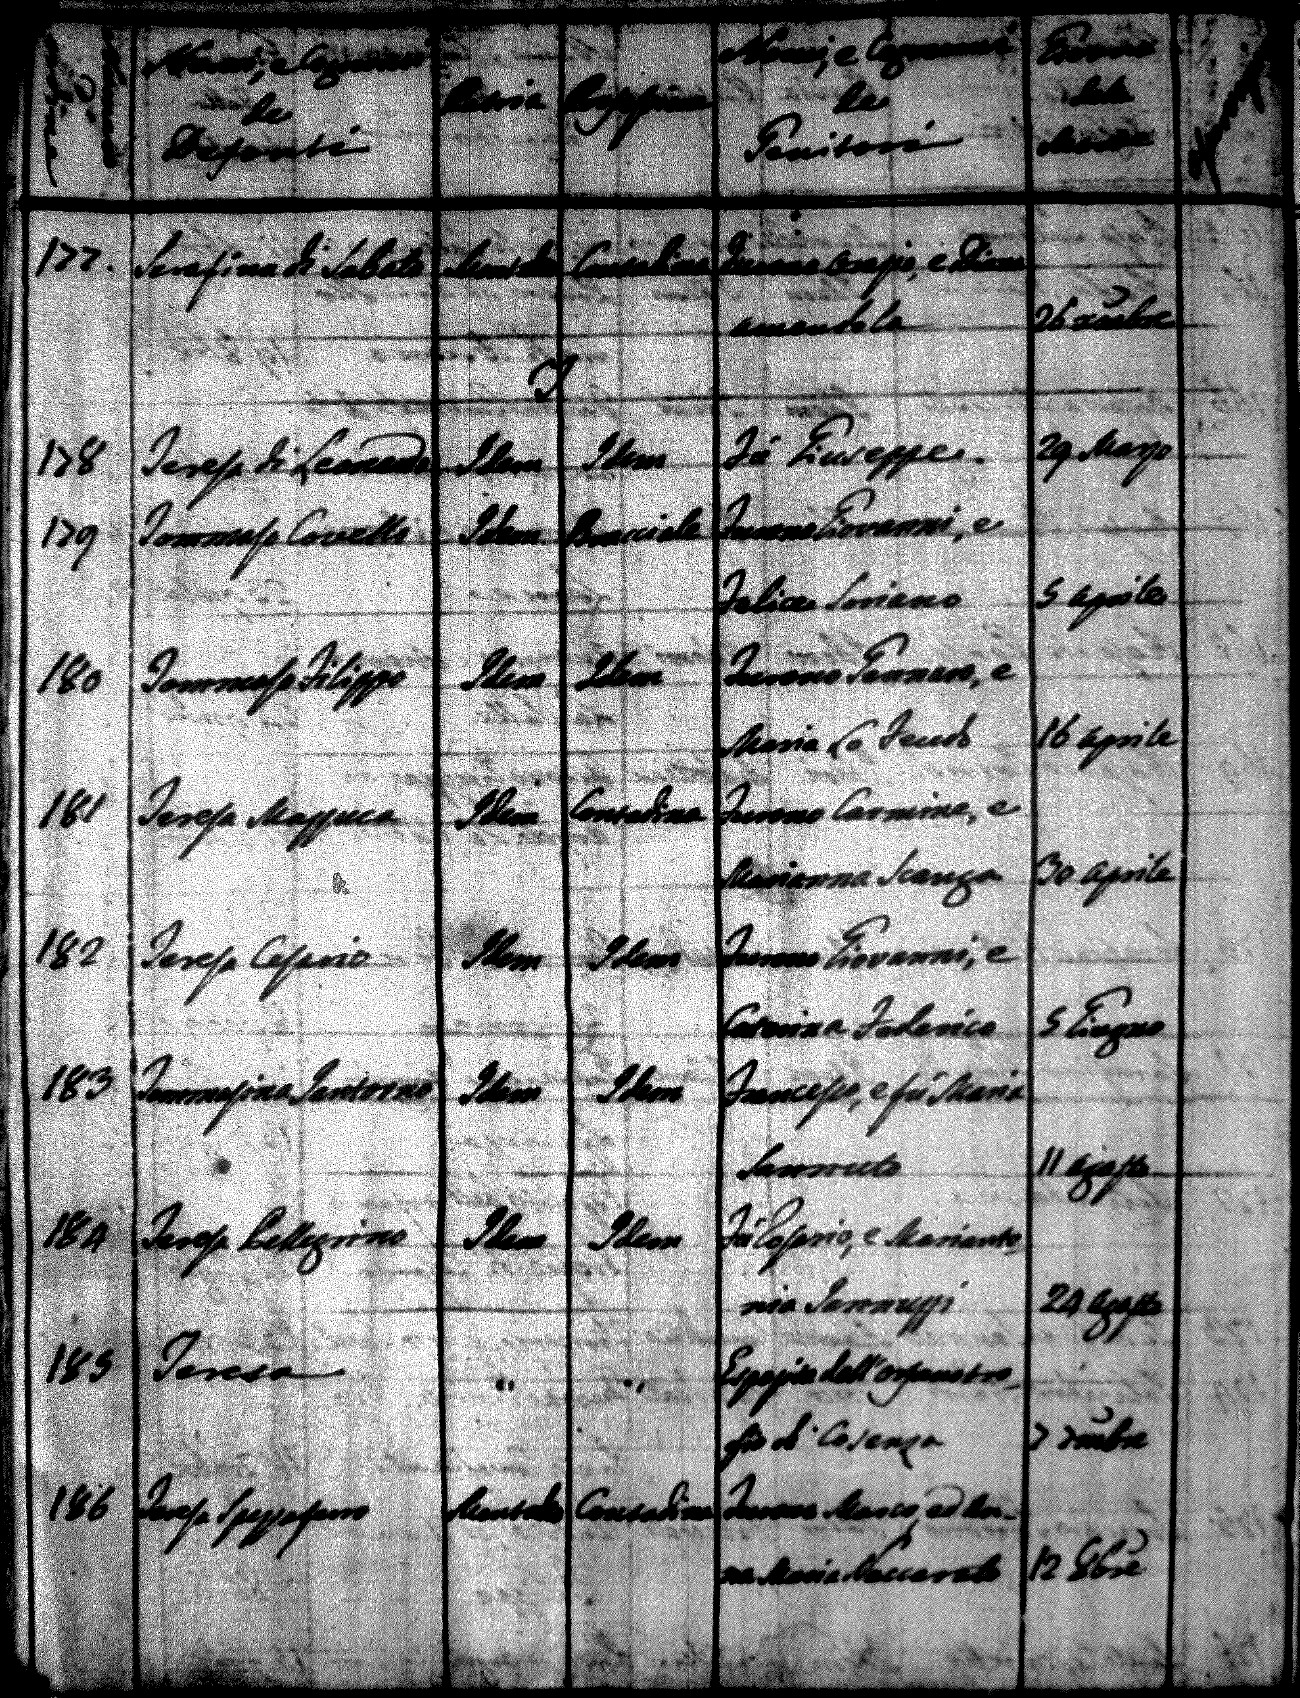 Nomi, e Cognomi
de
Defonti
Patria
Nomi, e Cognomi
de
Genitori
Giorno
della
Morte
177. Serafina di Sabato Contadina Furono e
26 Xmbre
T
178 Teresa di Leonardo Idem Idem Fù Giuseppe. 29 Marzo
179 Tommasa Covelli Idem Bracciale Furono Giovanni, e
Felice Soriano 5 aprile
180 Tommasa Filippo Idem Idem Furono Gennaro, e
Maria Lo Feudo 16 aprile
181 Teresa Mazzuca Idem Contadina Furono Carmine, e
Marianna Scanga 30 aprile
182 Teresa Cesario Idem Idem Furono Giovanni, e
Caterina Federico 5 Giugno
183 Tommasina Santorno Idem Idem Francesco, e fù Maria
Iannuto 11 agosto
184 Teresa Pellegrino Idem Idem Fù Rosario, e Marianto
nia Iannuzzi 24 agosto
185 Teresa " " Esposita dell'orfanotro
fio di Cosenza 7 7mbre
186 Teresa Spezzaferro Contadina Furono Marco, ed An-
na Maria Vaccarato 12 8bre